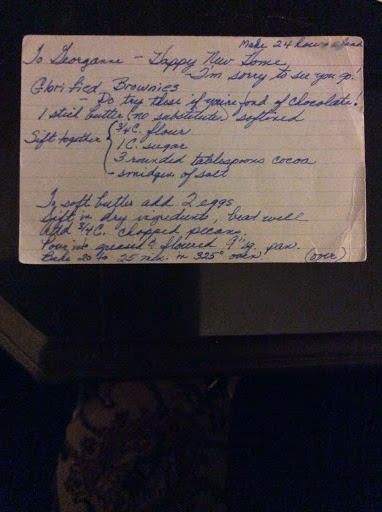 Make 24 hours ahead
To Georganne - Happy New Home,
I'm sorry to see you go.
Glorified Brownies
- Do try these if you're fond of chocolate!
1 stick butter (no substitutes) softened
Sift together { 3/4 C. flour
1 C. sugar
3 rounded tablespoons cocoa
- smidgen of salt
To soft butter add 2 eggs
Sift in dry ingredients, beat well
Add 3/4 C. chopped pecans.
Pour into greased & floured 9" sq. pan.
Bake 20 to 25 min. in 325° oven (over)